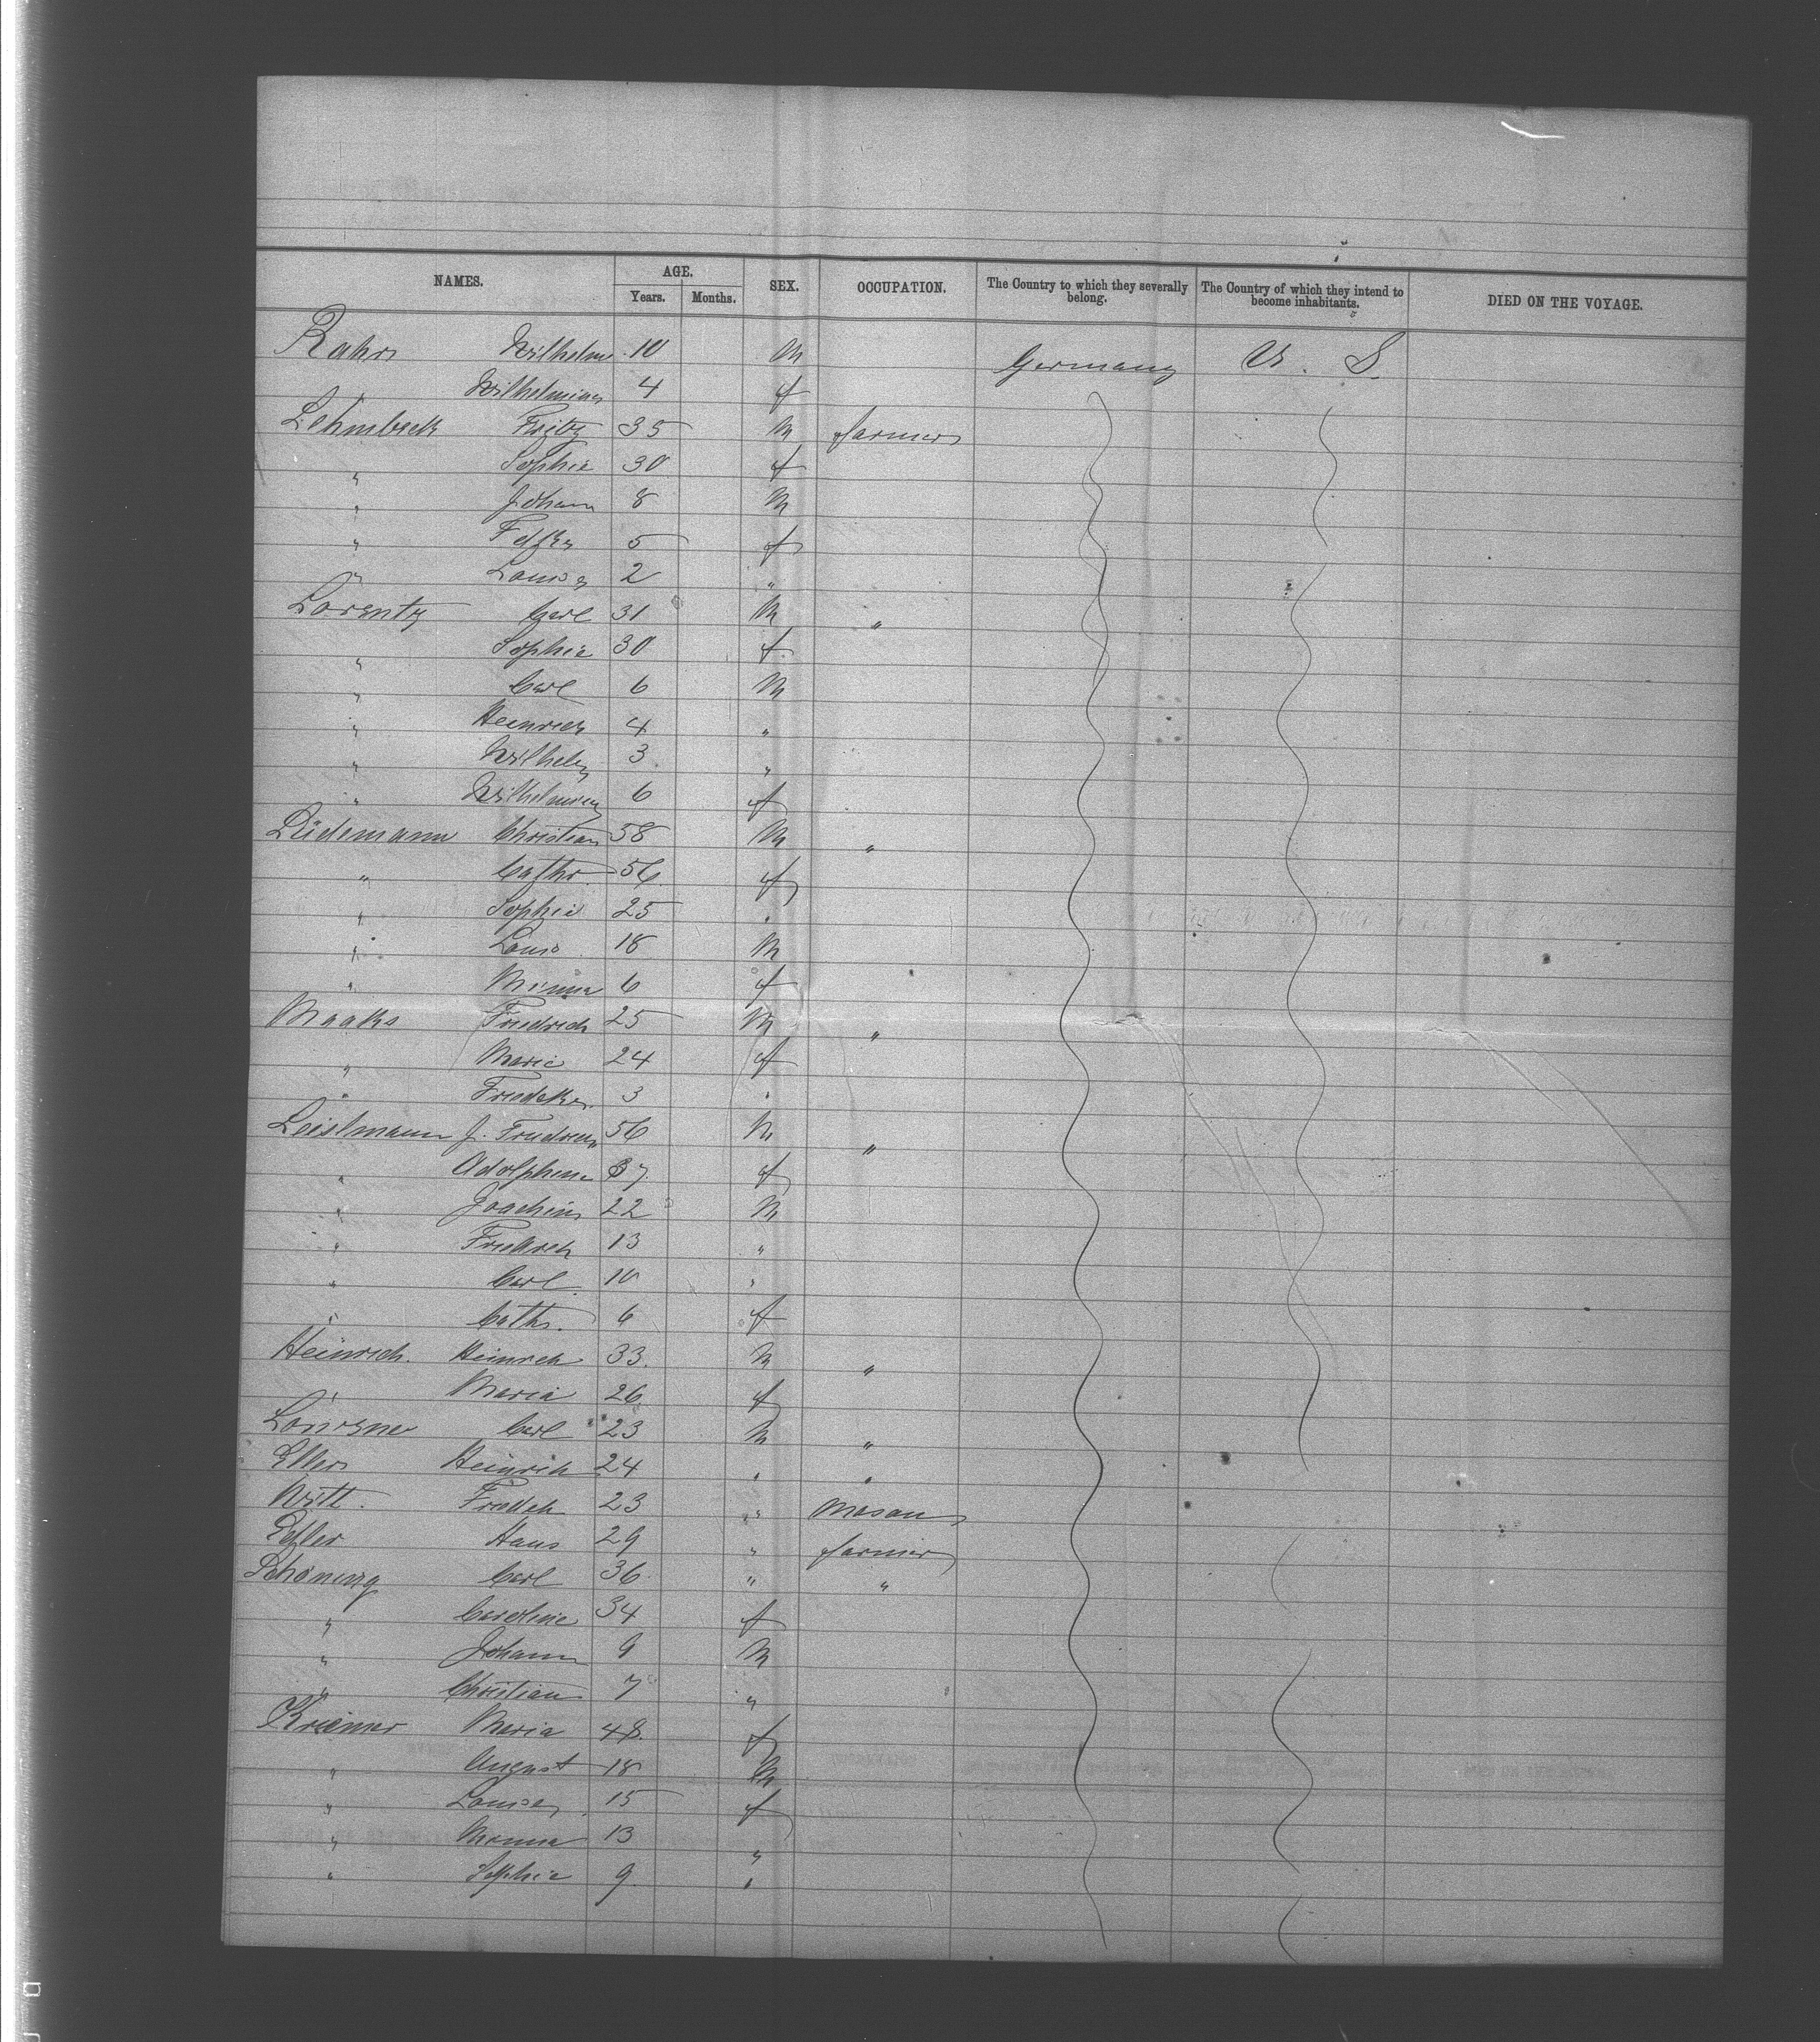 NAMES. AGE. SEX. OCCUPATION. The Country to which they severally belong. The Country of which they intend to become inhabitants. DIED ON THE VOYAGE.
Years. Months.
Rahn Wilhelm 10 M Germany U. S.
" Wilhelmine 4 f
Lehmbeck Fritz 35 M farmer
" Sophie 30 f
" Johann 8 M
" 5 f
" Louise 2 "
Lorentz Carl 31 M "
" Sophie 30 f
" Carl 6 M
" Heinrich 4 "
" Wilhelm 3 "
" Wilhelmine 6 f
Lüdemann Christian 58 M "
" Cathr. 56 f
" Sophie 25 "
" Louis 18 M
" Minna 6 f
Maaks Friedrich 25 M "
" Marie 24 f
" 3 "
Leislmann J. Friedrich 56 M "
" Adolphine 37 f
" Joachim 22 M
" Friedrich 13 "
" Carl 10 "
" Cathr. 6 f
Heinrich Heinrich 33 M "
" Maria 26 f
Carl 23 M "
Ellers Heinrich 24 " "
Witt Friedch 23 " Mason
Edler Hans 29 " farmer
Schöning Carl 36 " "
" Caroline 34 f
" Johann 9 M
" Christian 7 "
Kraemer Maria 48 f
" August 18 M
" Louise 15 f
" Minna 13 "
" Sophie 9 "